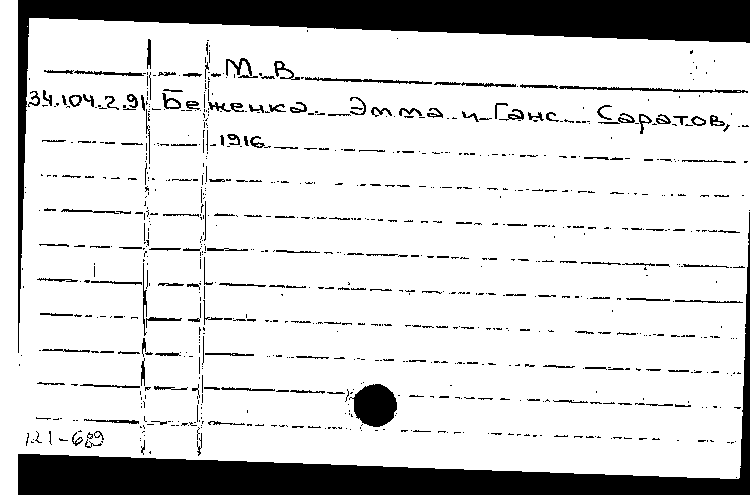 М. В.
34.104.2.91 Беженка Эмма и Ганс Саратов,
1916
121-689